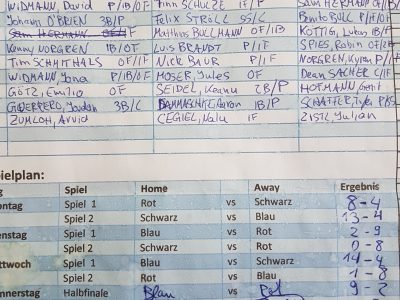 WIDMANN, David P/IB/OF Tim SCHULZE IF/OF Sam HERMANN OF/
Johann O'BRIEN 3B/P Felix STROLL SS/C Benito BÜLL P/IF/OF
Sam HERMANN Matthias BUCLMANN OF/1B KÖTTIG, Lukas IB/P
Konny NORGREN IB/OF Luis BRANDT P/IF SPIES, Robin OF/
Tim SCHMITHALS OF/IF Nick BAUR P/IF NORGREN, Kyron P/IF
WIDMANN, Jona P/IB/OF MOSER, Jules OF Dean SACHER C/IF
GÖTZ, Emilio OF SEIDEL, Keanu 2B/P HOFMANN, Gerit
GUERRERO, Jordan 3B/C Aaron IB/P SCHÄFFER, P/SS
ZUMLOH, Arvid CEGIEL, Nalu IF ZISTL, Julian
ielplan:
g Spiel Home Away Ergebnis
ontag Spiel 1 Rot vs Schwarz 8-4
Spiel 2 Schwarz vs Blau 13-4
enstag Spiel 1 Blau vs Rot 2-9
Spiel 2 Schwarz vs Rot 0-8
ittwoch Spiel 1 Blau vs Schwarz 14-4
Spiel 2 Rot vs Blau 1-8
nnerstag Halbfinale Blau vs Rot 9-2